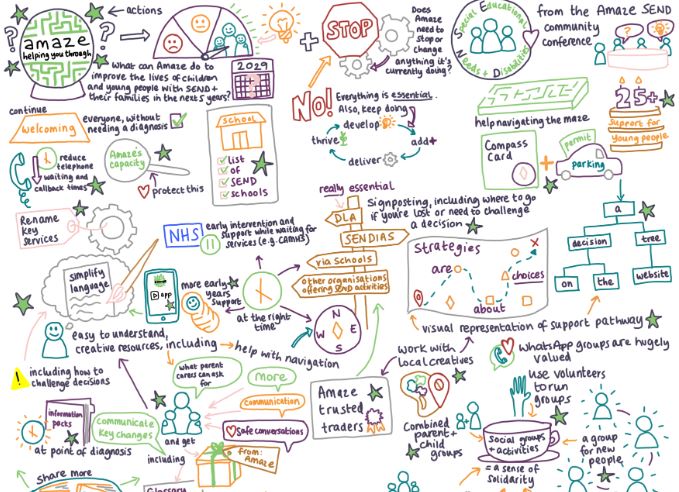 actions
amaze
helping you through
?
?
What can Amaze do to
improve the lives of children
and young people with SEND +
their families in the next 5 years?
2029
+
STOP
Does
Amaze
need to
stop or
change
anything it's
currently doing?
Special Educational
Needs + Disabilities
from the Amaze SEND
community
conference
NO!
Everything is essential.
Also, keep doing
develop
add+
deliver
thrive
help navigating the maze
25+
support for
young people
continue
welcoming
everyone, without
needing a diagnosis
school
list
of
SEND
schools
reduce
telephone
waiting and
callback times
Amaze's
capacity
protect this
Compass
Card
+
permit
parking
Rename
key
services
NHS
early intervention and
support while waiting for
services (e.g. CAMHS)
really essential
DLA
SENDIAS
via schools
other organisations
offering SEND activities
Signposting, including where to go
if you're lost or need to challenge
a decision
a
decision
tree
on
the
website
Strategies
are
choices
about
x
simplify
language
app
more early
years
support
at the right
time
N
E
S
W
visual representation of support pathway
easy to understand,
creative resources, including
help with navigation
!
including how to
challenge decisions
what parent
carers can ask
for
more
communication
Safe conversations
work with
local creatives
WhatsApp groups are hugely
valued
use volunteers
to run
groups
Amaze
trusted
traders
Combined
parent +
child
groups
social groups
+ activities
= a sense of
solidarity
a group
for new
people
information
packs
at point of diagnosis
communicate
key changes
and get
including
from:
Amaze
share more
Glossary